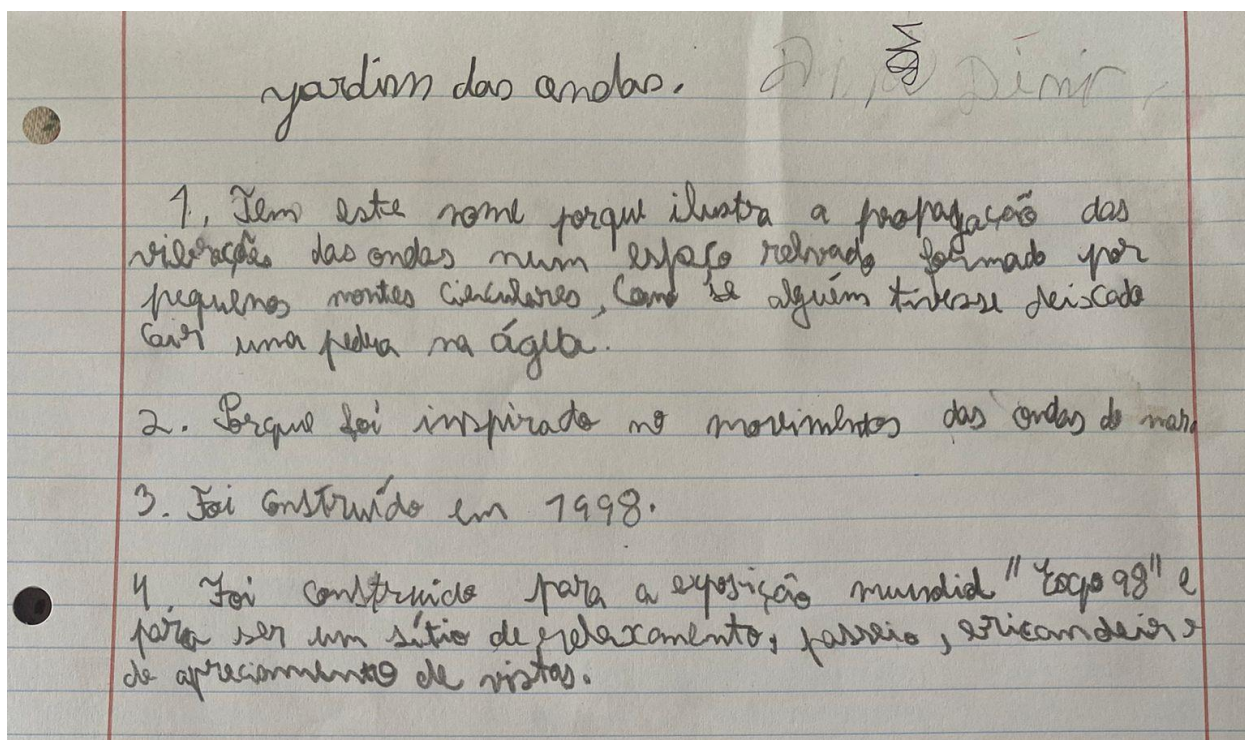 yardim das ondas.
1. Tem este nome porque ilustra a propagação das
vibrações das ondas num espaço relvado formado por
pequenos montes circulares, como se alguém tivesse deiscado
cair uma pedra na água.
2. Porque foi inspirado no movimentos das ondas do mar.
3. Foi construído em 1998.
4. Foi construido para a exposição mundial "Expo 98" e
para ser um sítio de relaxamento, passeio,
de apreciamento de vistas.